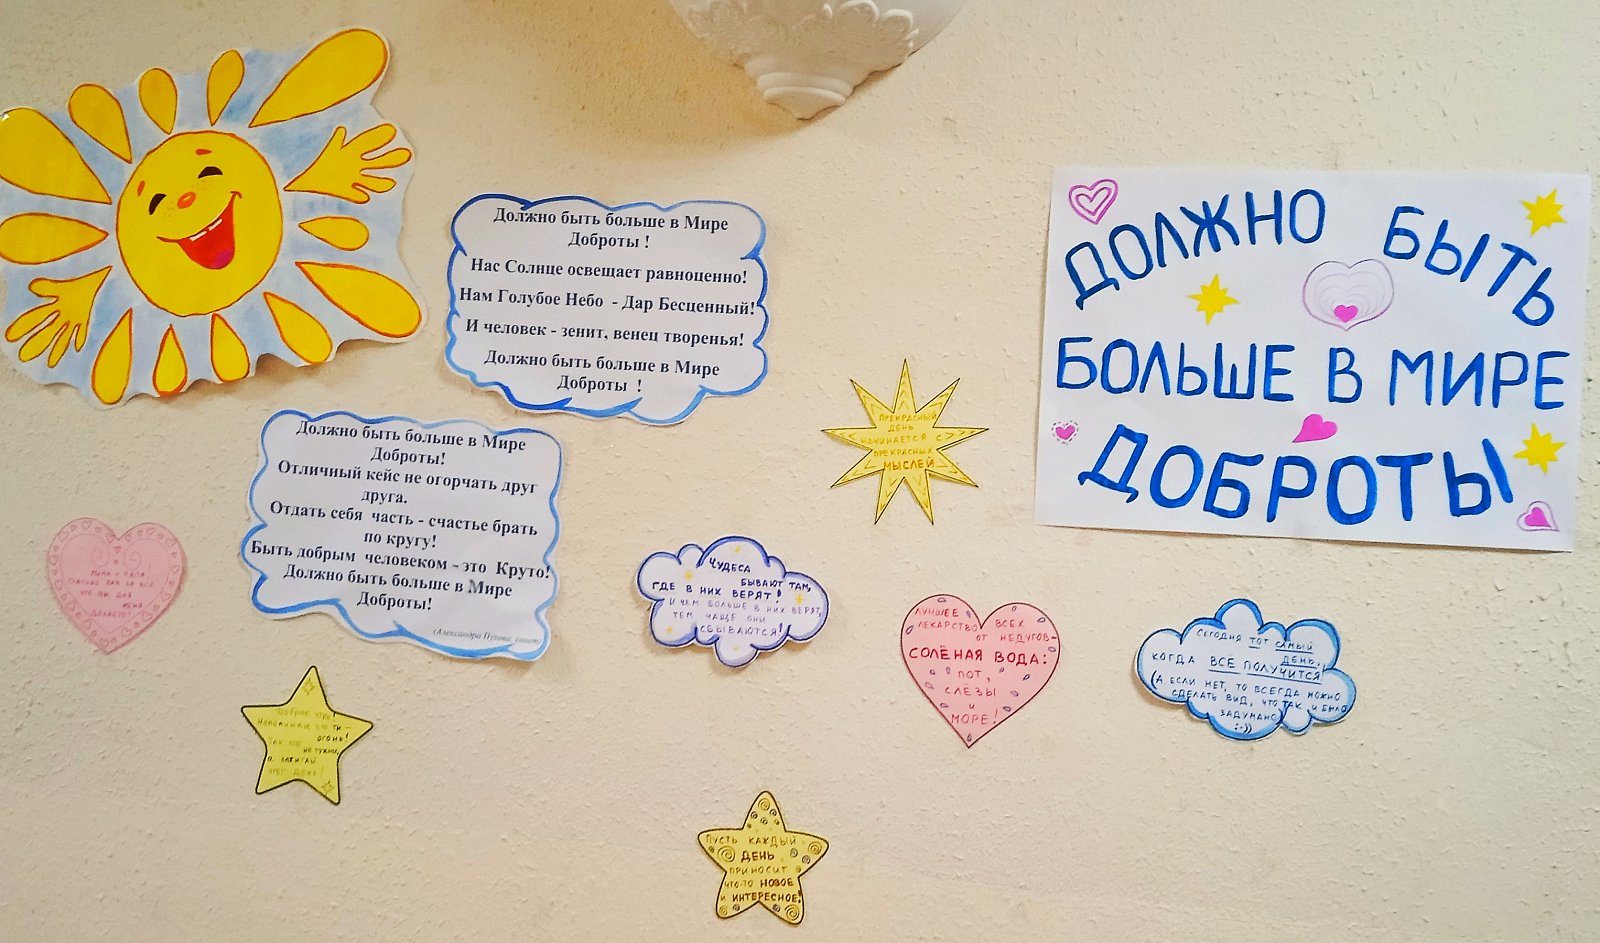 Должно быть больше в Мире
Доброты !
Нас Солнце освещает равноценно!
Нам Голубое Небо - Дар Бесценный!
И человек - зенит, венец творенья!
Должно быть больше в Мире
Доброты !
ДОЛЖНО БЫТЬ
БОЛЬШЕ В МИРЕ
ДОБРОТЫ
Должно быть больше в Мире
Доброты!
Отличный кейс не огорчать друг
друга.
Отдать себя часть - счастье брать
по кругу!
Быть добрым человеком - это Круто!
Должно быть больше в Мире
Доброты!
(Александра Пухова, сонет)
ПРЕКРАСНЫЙ
ДЕНЬ
НАЧИНАЕТСЯ С
ПРЕКРАСНЫХ
МЫСЛЕЙ
МАМА И ПАПА
СПАСИБО ВАМ ЗА ВСЁ
ЧТО ВЫ ДЛЯ
МЕНЯ
ДЕЛАЕТЕ!
ЧУДЕСА
БЫВАЮТ ТАМ,
ГДЕ В НИХ ВЕРЯТ!
И ЧЕМ БОЛЬШЕ В НИХ ВЕРЯТ,
ТЕМ ЧАЩЕ ОНИ
СБЫВАЮТСЯ!
ЛУЧШЕЕ
ЛЕКАРСТВО ВСЕХ
ОТ НЕДУГОВ-
СОЛЁНАЯ ВОДА:
ПОТ,
СЛЁЗЫ
И
МОРЕ!
СЕГОДНЯ ТОТ САМЫЙ
ДЕНЬ,
КОГДА ВСЁ ПОЛУЧИТСЯ
(А ЕСЛИ НЕТ, ТО ВСЕГДА МОЖНО
СДЕЛАТЬ ВИД, ЧТО ТАК И БЫЛО
ЗАДУМАНО
:-))
ДОБРОЕ УТРО!
НАПОМИНАЮ ЧТО ТЫ -
ОГОНЬ!
ТАК ЧТО НЕ ТУХНИ,
А ЗАЖИГАЙ
ЭТОТ ДЕНЬ!
ПУСТЬ КАЖДЫЙ
ДЕНЬ
ПРИНОСИТ
ЧТО-ТО НОВОЕ
И ИНТЕРЕСНОЕ!